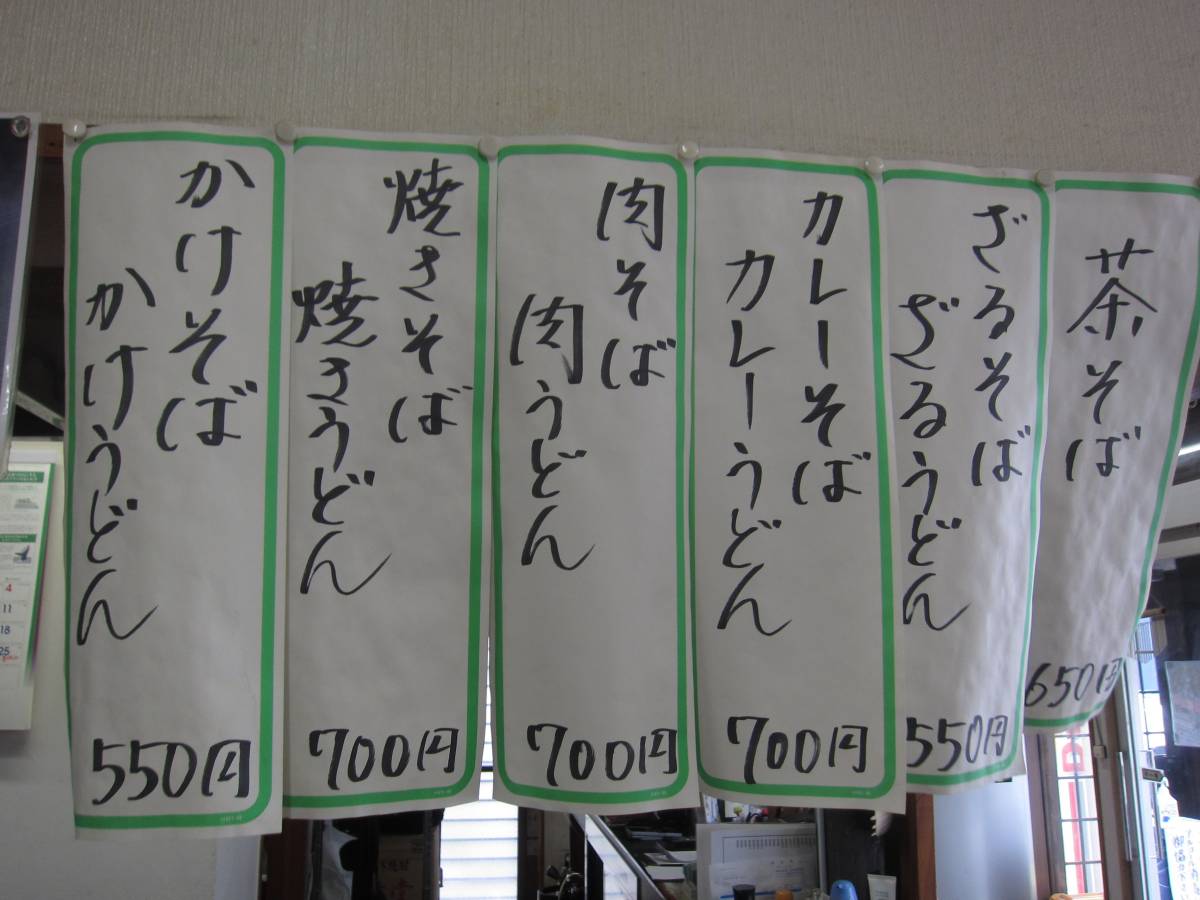 茶そば
650円
ざるそば
ざるうどん
550円
カレーそば
カレーうどん
700円
肉そば
肉うどん
700円
焼きそば
焼きうどん
700円
かけそば
かけうどん
550円
4
11
18
25